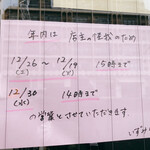 年内は 店主の怪我のため
12/26〜12/29 15時まで
(土) (火)
12/30 14時まで
(水)
の営業とさせていただきます。